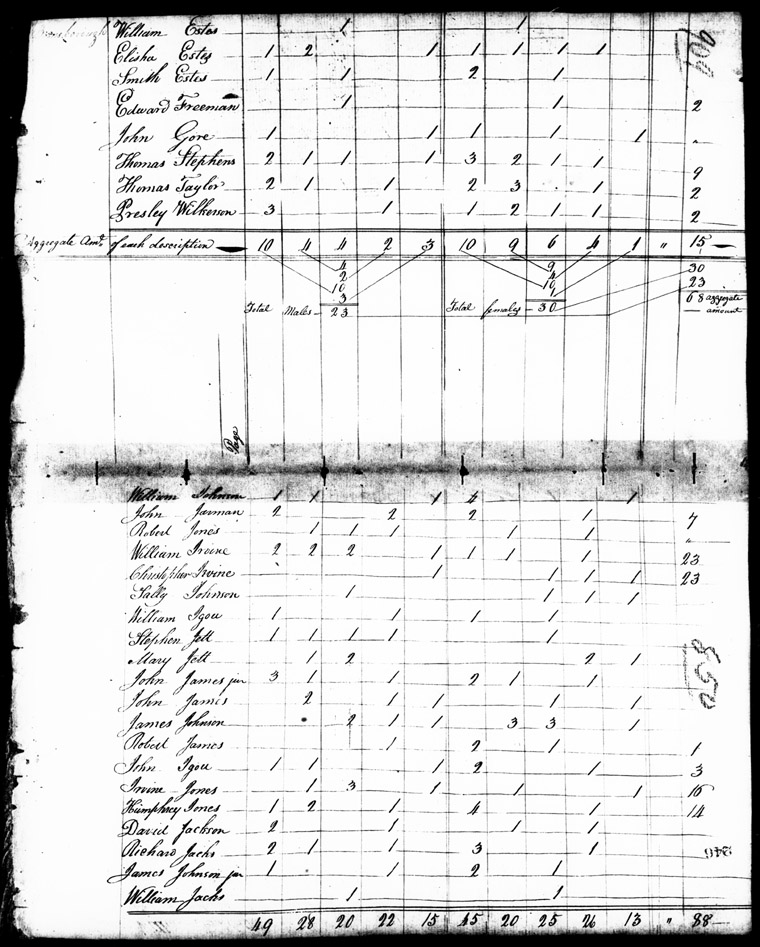 William Estes 1 1
Elisha Estes 1 2 1 1 1 1 1
Smith Estes 1 1 2 1
Edward Freeman 1 1 2
John Gore 1 1 1 1 1 "
Thomas Stephens 2 1 1 1 3 2 1 1 9
Thomas Taylor 2 1 2 2 3 1 2
Presley Wilkerson 3 1 1 2 1 1 2
Aggregate Amt. of each description 10 4 4 2 3 10 9 6 4 1 " 15
4 9 30
2 4 23
10 10 68 aggregate
3 1 amount
Total Males 23 Total females 30
Page
William Johnson 1 1 1 4 1
John Jarman 2 2 2 1 7
Robert Jones 1 1 1 1 1 "
William Irvine 2 2 2 1 1 1 1 23
Christopher Irvine 1 1 1 1 23
Sally Johnson 1 1 1 1
William Igou 1 1 1 1
Stephen Jett 1 1 1 1 1
Mary Jett 1 2 2 1
John James jun 3 1 1 2 1 1
John James 2 1 1 1 1
James Johnson 2 1 1 3 3 1
Robert James 1 2 1 1
John Igou 1 1 1 2 1 3
Irvine Jones 1 3 1 1 1 16
Humphrey Jones 1 2 1 4 1 14
David Jackson 2 1 1 1
Richard Jacks 2 1 1 3 1
James Johnson jun 1 1 2 1
William Jacks 1 1
49 28 20 22 15 45 20 25 26 13 " 88